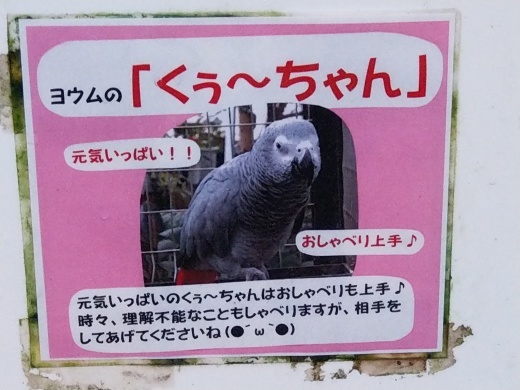 ヨウムの「くぅ～ちゃん」
元気いっぱい！！
おしゃべり上手♪
元気いっぱいのくぅ～ちゃんはおしゃべりも上手♪
時々、理解不能なこともしゃべりますが、相手を
してあげてくださいね(●´ω｀●)